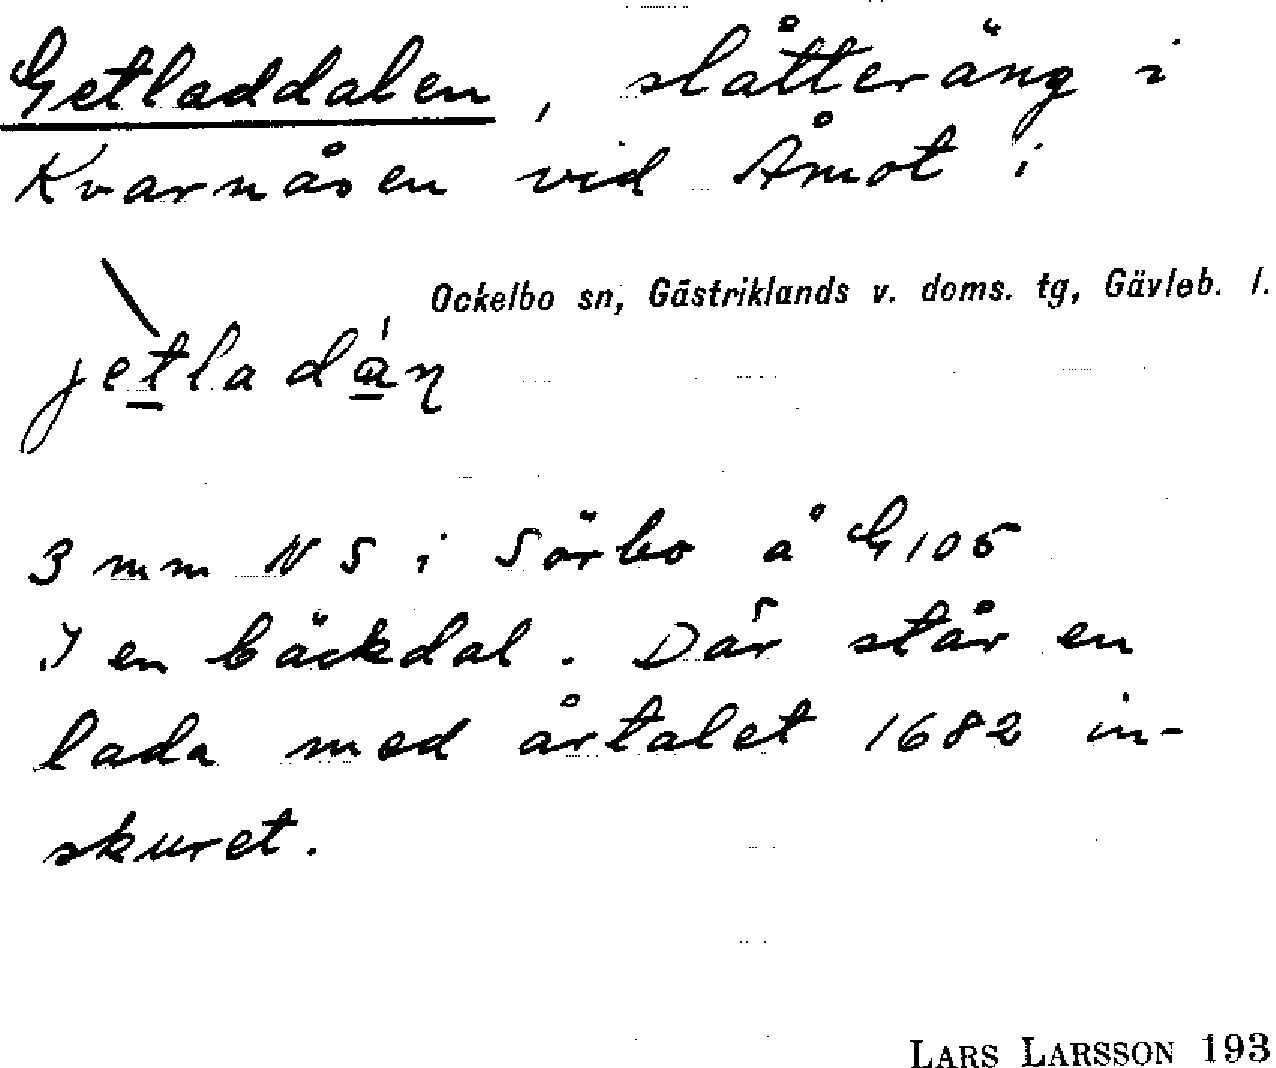 Getladdalen, slåtteräng i
Kvarnåsen vid Åmot i
Ockelbo sn, Gästriklands v. doms. tg, Gävleb. l.
jetladán
3 mm N S i Sörbo å G105
I en bäckdal. Där står en
lada med årtalet 1682 in-
skuret.
LARS LARSSON 193